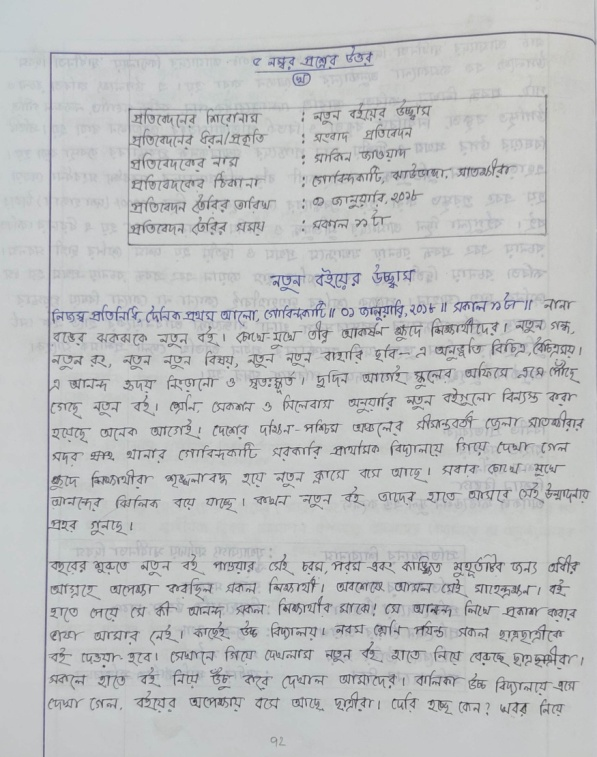 ৫ নম্বর প্রশ্নের উত্তর
খ
প্রতিবেদনের শিরোনাম : নতুন বইয়ের উচ্ছ্বাস
প্রতিবেদনের ধরন/প্রকৃতি : সংবাদ প্রতিবেদন
প্রতিবেদকের নাম : সাকিল জাওয়াদ
প্রতিবেদকের ঠিকানা : গোবিন্দকাটি, ঝাউডাঙ্গা, সাতক্ষীরা
প্রতিবেদন তৈরির তারিখ : ৩ জানুয়ারি, ২০১৮
প্রতিবেদন তৈরির সময় : সকাল ১১ টা
নতুন বইয়ের উচ্ছ্বাস
নিজস্ব প্রতিনিধি, দৈনিক প্রথম আলো, গোবিন্দকাটি॥ ০১ জানুয়ারি, ২০১৮॥ সকাল ১১ টা॥ নানা
রঙের ঝকঝকে নতুন বই। চোখে-মুখে তীব্র আকর্ষন ক্ষুদে শিক্ষার্থীদের। নতুন গন্ধ,
নতুন রং, নতুন নতুন বিষয়, নতুন নতুন বাহারি ছবি- এ অনুভূতি বিচিত্র, বৈচিত্রময়।
এ আনন্দ হৃদয় নিংড়ানো ও স্বতঃস্ফূর্ত। দুদিন আগেই স্কুলের অফিসে এসে পৌঁছে
গেছে নতুন বই। শ্রেনি, সেকশন ও সিলেবাস অনুযায়ি নতুন বইগুলো বিন্যস্ত করা
হয়েছে অনেক আগেই। দেশের দক্ষিন-পশ্চিম অঞ্চলের সীমান্তবর্তী জেলা সাতক্ষীরার
সদর থানার গোবিন্দকাটি সরকারি প্রাথমিক বিদ্যালয়ে গিয়ে দেখা গেল
ক্ষুদে শিক্ষার্থীরা শৃঙ্খলাবদ্ধ হয়ে নতুন ক্লাসে বসে আছে। সবার চোখে মুখে
আনন্দের ঝিলিক বয়ে যাচ্ছে। কখন নতুন বই তাদের হাতে আসবে সেই উন্মাদনায়
প্রহর গুনছে।
বছরের শুরুতে নতুন বই পাওয়ার সেই চরম, পরম এবং কাঙ্ক্ষিত মুহূর্তটির জন্য অধীর
আগ্রহে অপেক্ষা করছিল সকল শিক্ষার্থী। অবশেষে আসল সেই মাহেন্দ্রক্ষন। বই
হাতে পেয়ে সে কী আনন্দ সকল শিক্ষার্থীর মাঝে! সে আনন্দ লিখে প্রকাশ করার
ভাষা আমার নেই। কাছেই উচ্চ বিদ্যালয়। নবম শ্রেনি পর্যন্ত সকল ছাত্রছাত্রীকে
বই দেওয়া হবে। সেখানে গিয়ে দেখলাম নতুন বই হাতে নিয়ে বেরুচ্ছে ছাত্রছাত্রীরা।
সকলে হাতে বই নিয়ে উঁচু করে দেখাল আমাদের। বালিকা উচ্চ বিদ্যালয়ে এসে
দেখা গেল, বইয়ের অপেক্ষায় বসে আছে ছাত্রীরা। দেরি হচ্ছে কেন? খবর নিয়ে